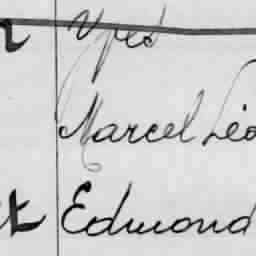 Yves
Marcel Léo
Edmond